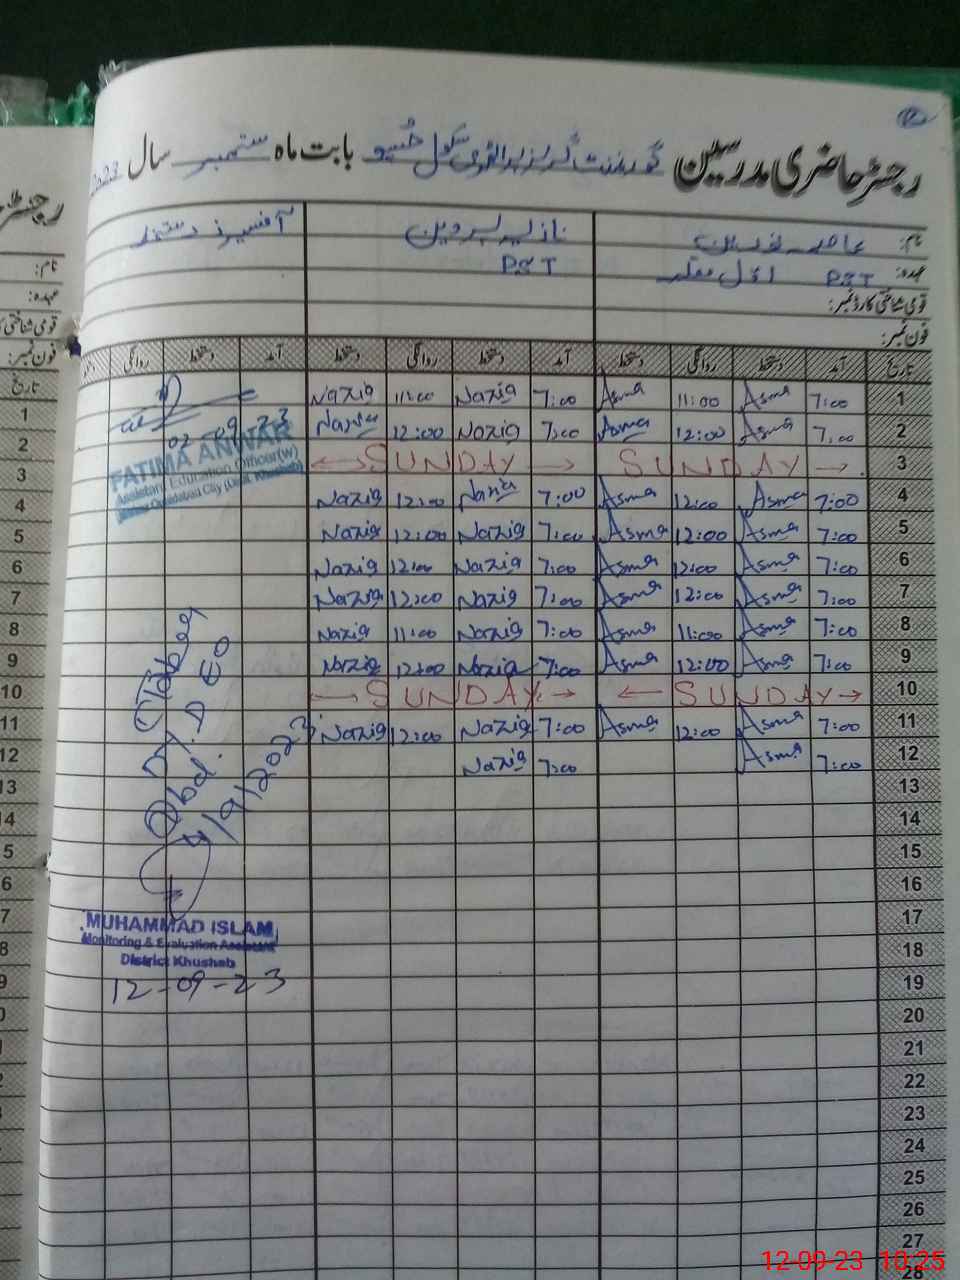 رجسٹر حاضری مدرسین گورنمنٹ گرلز پرائمری سکول بابت ماہ ستمبر سال 2023
نام: عاصمہ نازیہ پروین آفیسرز دستخط
عہدہ: PST اول معلمہ PST
قومی شناختی کارڈ نمبر:
فون نمبر:
تاریخ آمد دستخط روانگی دستخط آمد دستخط روانگی دستخط آمد دستخط روانگی
1 7:00 Asma 11:00 Asma 7:00 Nazia 11:00 Nazia
2 7:00 Asma 12:00 Asma 7:00 Nazia 12:00 Nazia
02 09 23
FATIMA ANWAR
Assistant Education Officer(W)
3 SUNDAY SUNDAY
4 7:00 Asma 12:00 Asma 7:00 Nazia 12:00 Nazia
5 7:00 Asma 12:00 Asma 7:00 Nazia 12:00 Nazia
6 7:00 Asma 12:00 Asma 7:00 Nazia 12:00 Nazia
7 7:00 Asma 12:00 Asma 7:00 Nazia 12:00 Nazia
8 7:00 Asma 11:00 Asma 7:00 Nazia 11:00 Nazia
9 7:00 Asma 12:00 Asma 7:00 Nazia 12:00 Nazia
10 SUNDAY SUNDAY
11 7:00 Asma 12:00 Asma 7:00 Nazia 12:00 Nazia
12 7:00 Asma 7:00 Nazia
13
14
15
16
17
18
19
20
21
22
23
24
25
26
27
28
Dy. D EO
4/9/2023
MUHAMMAD ISLAM
Monitoring & Evaluation Assistant
District Khushab
12-09-23
12-09-23 10:25